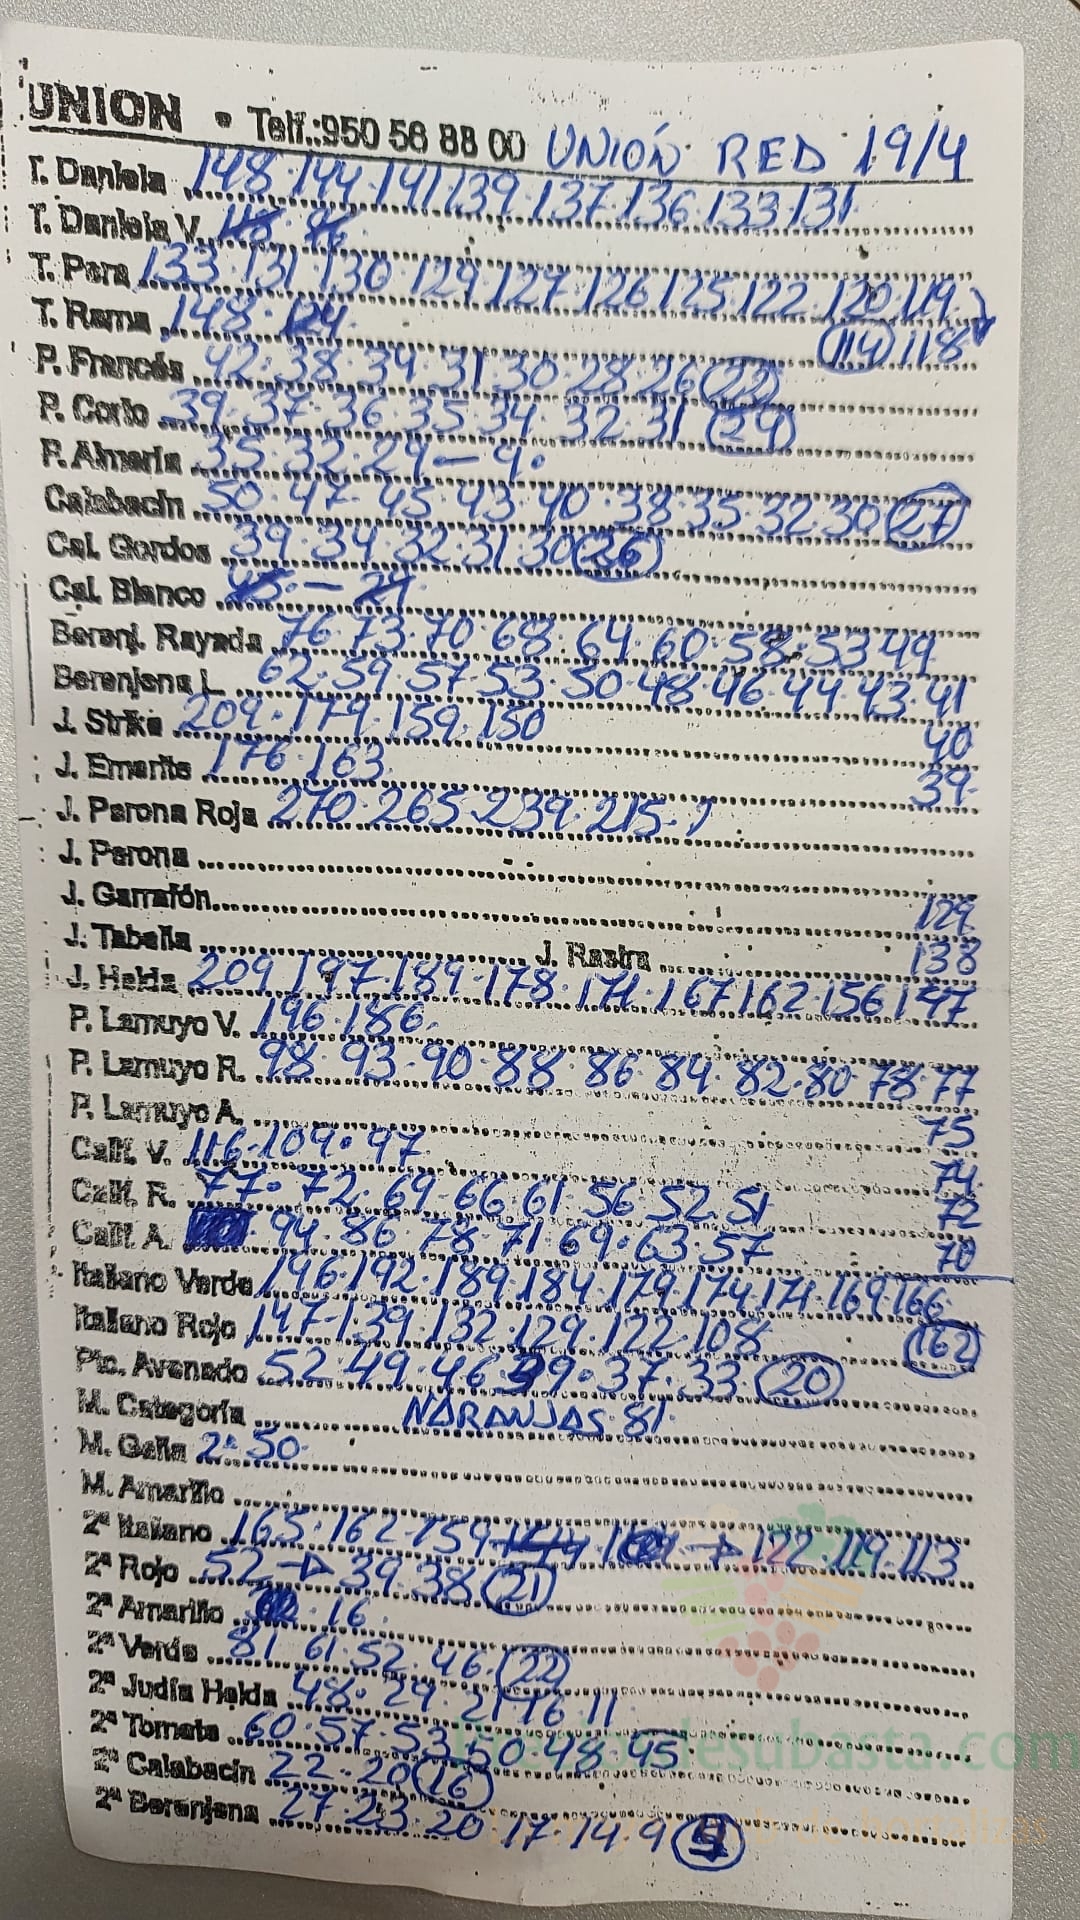 UNION • Telf.:950 56 88 00 UNIÓN RED 19/4
T. Daniela 148·144·141 139·137·136·133·131
T. Daniela V.
T. Pera 133·131·130·129·127·126·125·122·120·119
T. Rama 148·124 (114) 118
P. Francés 42·38·34·31·30·28·26 (22)
P. Corto 39·37·36·35·34·32·31 (24)
P. Almería 35·32·29—9·
Calabacín 50·47·45·43·40·38·35·32·30 (27)
Cal. Gordos 39·34·32·31·30 (26)
Cal. Blanco
Berenj. Rayada 76·73·70·68·64·60·58·53 49
Berenjena L. 62·59·57·53·50·48·46·44·43·41
J. Strike 209·179·159·150 40
J. Emerite 176·163 39
J. Perona Roja 270·265·239·215
J. Perona
J. Garrafón 129
J. Tabella J. Rastra 138
J. Helda 209 197·189·178·171·167 162·156 147
P. Lamuyo V. 196·186
P. Lamuyo R. 98·93·90·88·86·84·82·80·78·77
P. Lamuyo A. 75
Calif. V. 116·109·97 74
Calif. R. 77·72·69·66 61·56·52·51 72
Calif. A. 94·86·78·71·69·63·57 70
Italiano Verde 196·192·189·184·179·174·171·169·166
Italiano Rojo 147·139·132·129·122·108 (162)
Pic. Avenado 52·49·46·39·37·33 (20)
M. Categoría NARANJAS 81
M. Galia 2·50
M. Amarillo
2ª Italiano 165·162·159 122·119·113
2ª Rojo 52 → 39·38 (21)
2ª Amarillo 16
2ª Verde 81 61·52·46 (22)
2ª Judía Helda 48·29·21·16 11
2ª Tomate 60·57·53·50·48·45
2ª Calabacín 22·20 (16)
2ª Berenjena 27·23·20 17·14·9